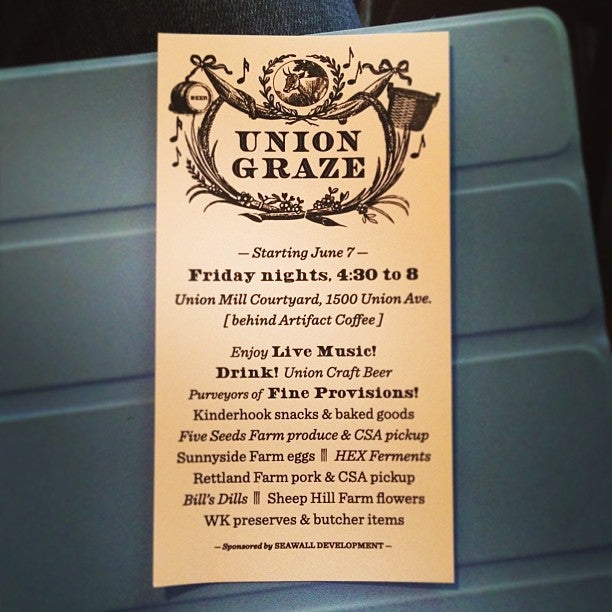 BEER
UNION
GRAZE
— Starting June 7 —
Friday nights, 4:30 to 8
Union Mill Courtyard, 1500 Union Ave.
[ behind Artifact Coffee ]
Enjoy Live Music!
Drink! Union Craft Beer
Purveyors of Fine Provisions!
Kinderhook snacks & baked goods
Five Seeds Farm produce & CSA pickup
Sunnyside Farm eggs ||| HEX Ferments
Rettland Farm pork & CSA pickup
Bill's Dills ||| Sheep Hill Farm flowers
WK preserves & butcher items
— Sponsored by SEAWALL DEVELOPMENT —